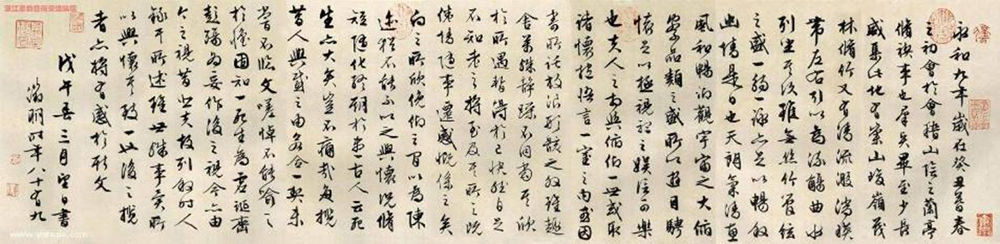 永和九年歲在癸丑暮春
之初會於會稽山陰之蘭亭
脩禊事也羣賢畢至少長
咸集此地有崇山峻嶺茂
林脩竹又有清流激湍映
帶左右引以為流觴曲水
列坐其次雖無絲竹管弦
之盛一觴一詠亦足以暢叙
幽情是日也天朗氣清惠
風和暢仰觀宇宙之大俯
察品類之盛所以遊目騁
懷足以極視聽之娛信可樂
也夫人之相與俯仰一世或取
諸懷抱悟言一室之內或因
寄所託放浪形骸之外雖趣
舍萬殊靜躁不同當其欣
於所遇暫得於己快然自足
不知老之將至及其所之既
倦情隨事遷感慨係之矣
向之所欣俛仰之間以為陳
迹猶不能不以之興懷況脩
短隨化終期於盡古人云死
生亦大矣豈不痛哉每攬
昔人興感之由若合一契未
嘗不臨文嗟悼不能喻之
於懷固知一死生為虛誕齊
彭殤為妄作後之視今亦由
今之視昔悲夫故列叙時人
錄其所述雖世殊事異所
以興懷其致一也後之攬
者亦將有感於斯文
戊午三月望日書
徵明時年八十有九